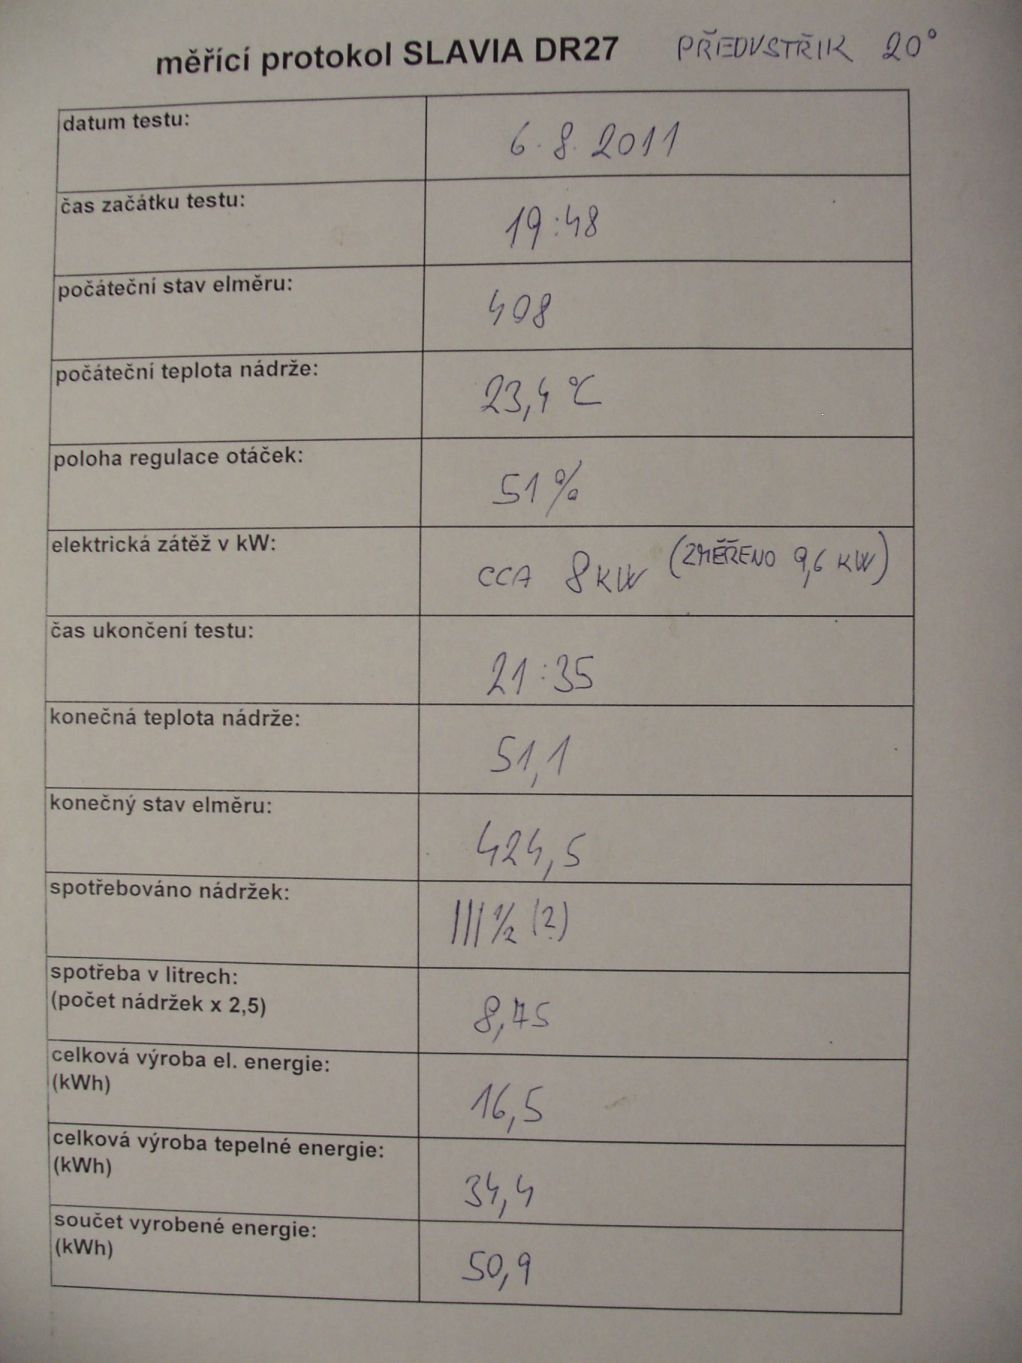 měřící protokol SLAVIA DR27 PŘEDVSTŘIK 20°
datum testu: 6.8.2011
čas začátku testu: 19:48
počáteční stav elměru: 408
počáteční teplota nádrže: 23,4 °C
poloha regulace otáček: 51%
elektrická zátěž v kW: CCA 8KW (ZMĚŘENO 9,6 KW)
čas ukončení testu: 21:35
konečná teplota nádrže: 51,1
konečný stav elměru: 424,5
spotřebováno nádržek: ||| 1/2 (?)
spotřeba v litrech:
(počet nádržek x 2,5) 8,75
celková výroba el. energie:
(kWh) 16,5
celková výroba tepelné energie:
(kWh) 34,4
součet vyrobené energie:
(kWh) 50,9